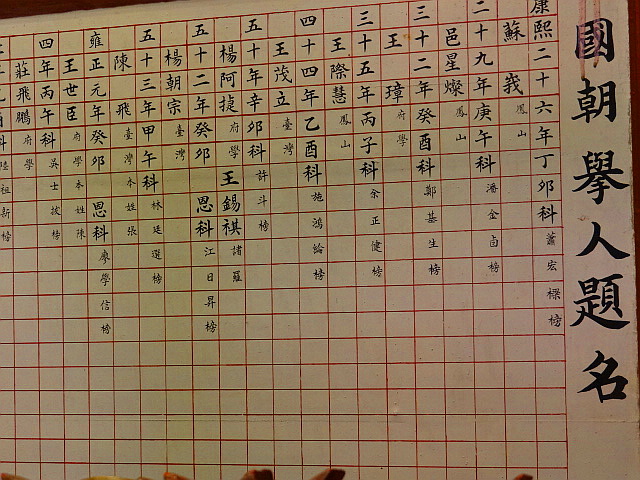 國朝舉人題名
康熙二十六年丁卯科 蕭宏樑榜
蘇峩 鳳山
二十九年庚午科 潘金卣榜
邑星燦 鳳山
三十二年癸酉科 鄭基生榜
王璋 府學
三十五年丙子科 余正健榜
王際慧 鳳山
四十四年乙酉科 施鴻論榜
王茂立 臺灣
五十年辛卯科 許斗榜
楊阿捷 府學 王錫祺 諸羅
五十二年癸卯 恩科 江日昇榜
楊朝宗 臺灣
五十三年甲午科 林廷選榜
陳飛 臺灣本姓張
雍正元年癸卯 恩科 廖學信榜
王世臣 府學本姓陳
四年丙午科 吳士拔榜
莊飛鵬 府學
酉科 陸祖新榜